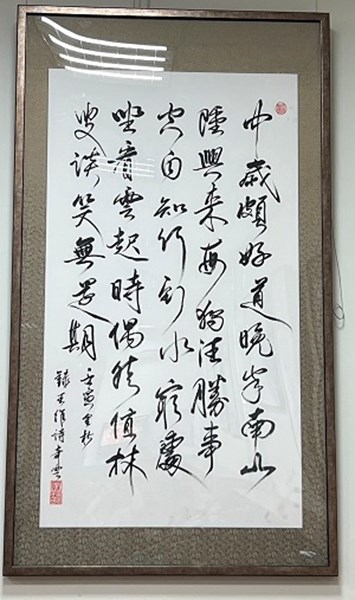 中歲頗好道晚家南山
陲興來每獨往勝事
空自知行到水窮處
坐看雲起時偶然值林
叟談笑無還期
壬寅金秋
錄王維詩